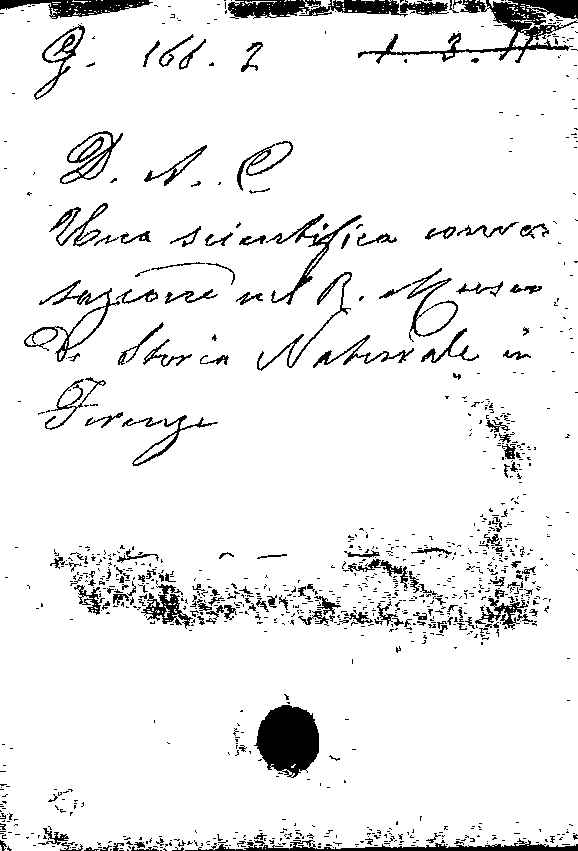 G. 166. 2 1. 3. 11
D. N. C
Una scientifica conver
sazione nel R. Museo
Di Storia Naturale in
Firenze